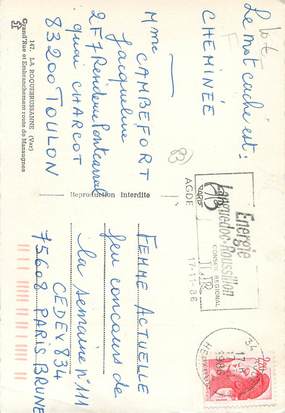 Le mot caché est :
CHEMINÉE
Mme CAMBEFORT
Jacqueline
2F7 Résidence Pontcarral
quai CHARCOT
83200 TOULON
147. LA ROQUEBRUSSANNE (Var)
Grand'Rue et Embranchement route de Mazaugues
Reproduction Interdite
83
AGDE
17-11-86
Energie
Languedoc-Roussillon
CONSEIL REGIONAL
34
17-11
1986
2,20
FEMME ACTUELLE
jeu concours de
la semaine n°111
CEDEX 834
75608 PARIS BRUNE